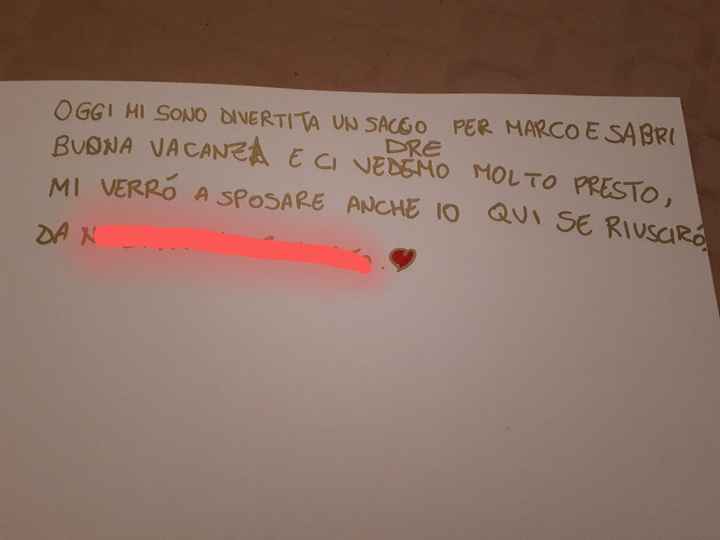 OGGI MI SONO DIVERTITA UN SACCO PER MARCO E SABRI
BUONA VACANZA E CI VEDREMO MOLTO PRESTO,
MI VERRÓ A SPOSARE ANCHE IO QUI SE RIUSCIRÓ
DA N